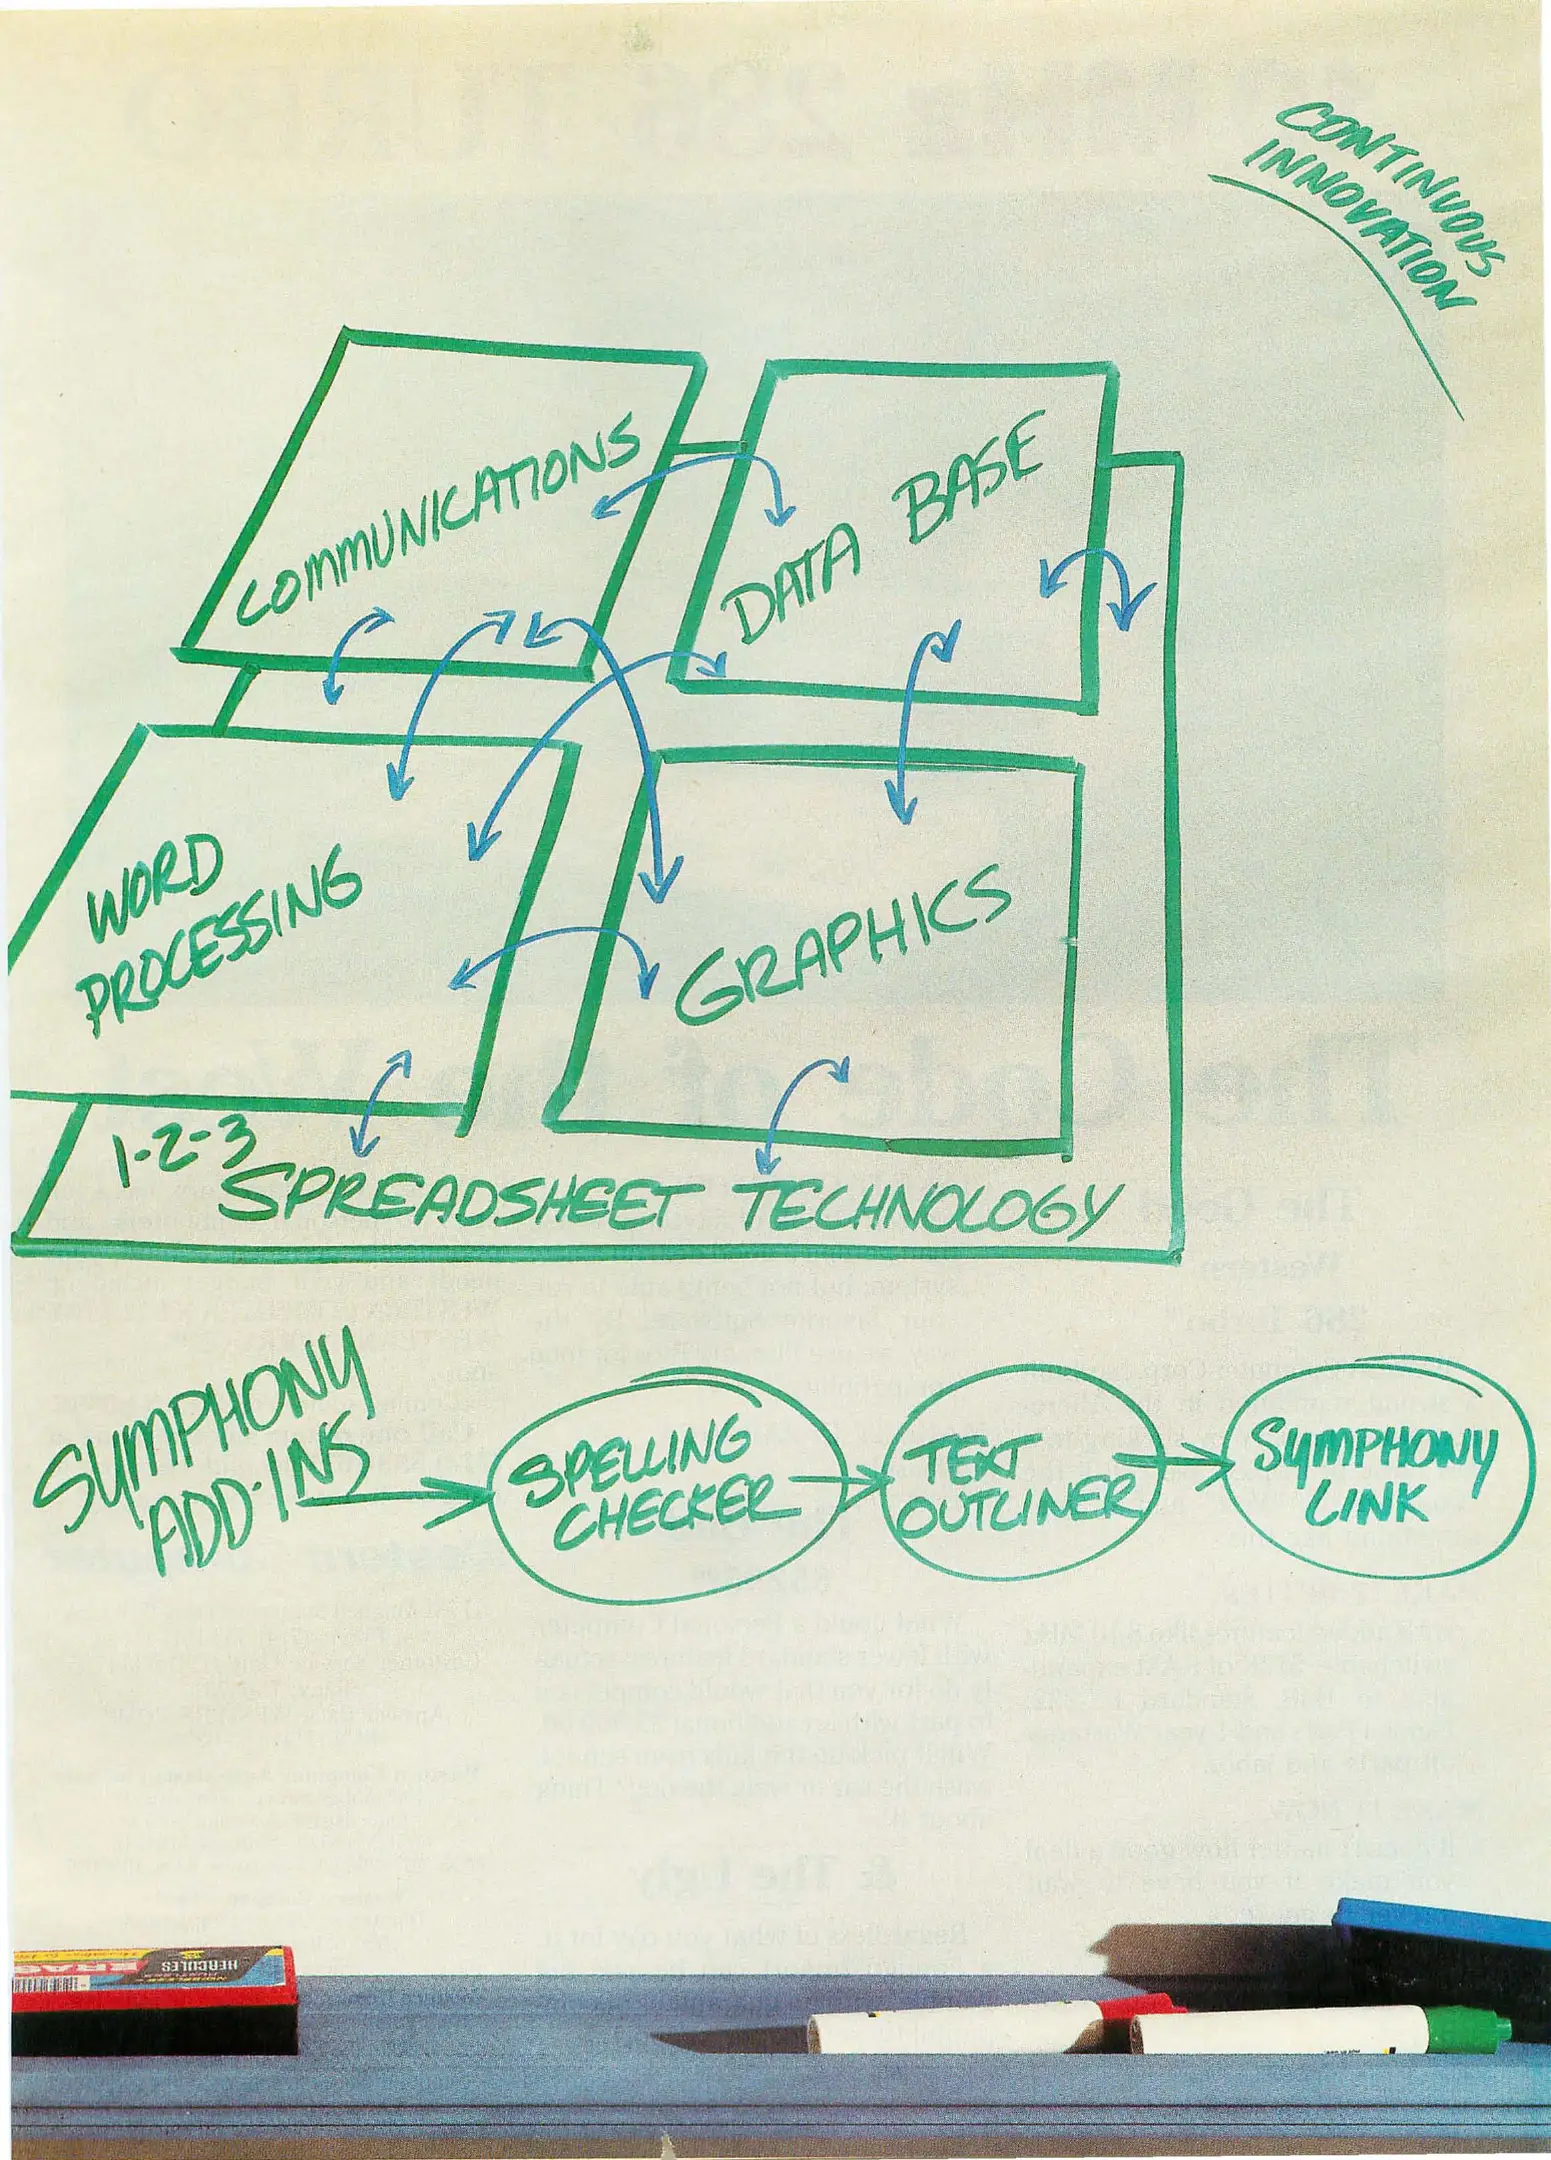 CONTINUOUS
INNOVATION
COMMUNICATIONS
DATA BASE
WORD
PROCESSING
GRAPHICS
1-2-3
SPREADSHEET TECHNOLOGY
SYMPHONY
ADD-INS
SPELLING
CHECKER
TEXT
OUTLINER
SYMPHONY
LINK
HERCULES
ERAS